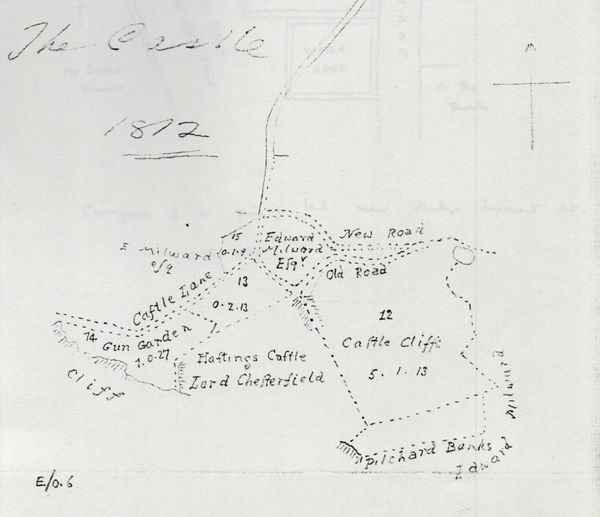 The Castle
1812
E Milward
esqr
15
0.1.9
Edward
Milward
Esqr
New Road
Old Road
Castle Lane
13
0.2.13
14
Gun Garden
1.0.27
Cliff
Hastings Castle
Lord Chesterfield
12
Castle Cliffs
5.1.13
Pilchard Banks
Edward Milward
E/0.6